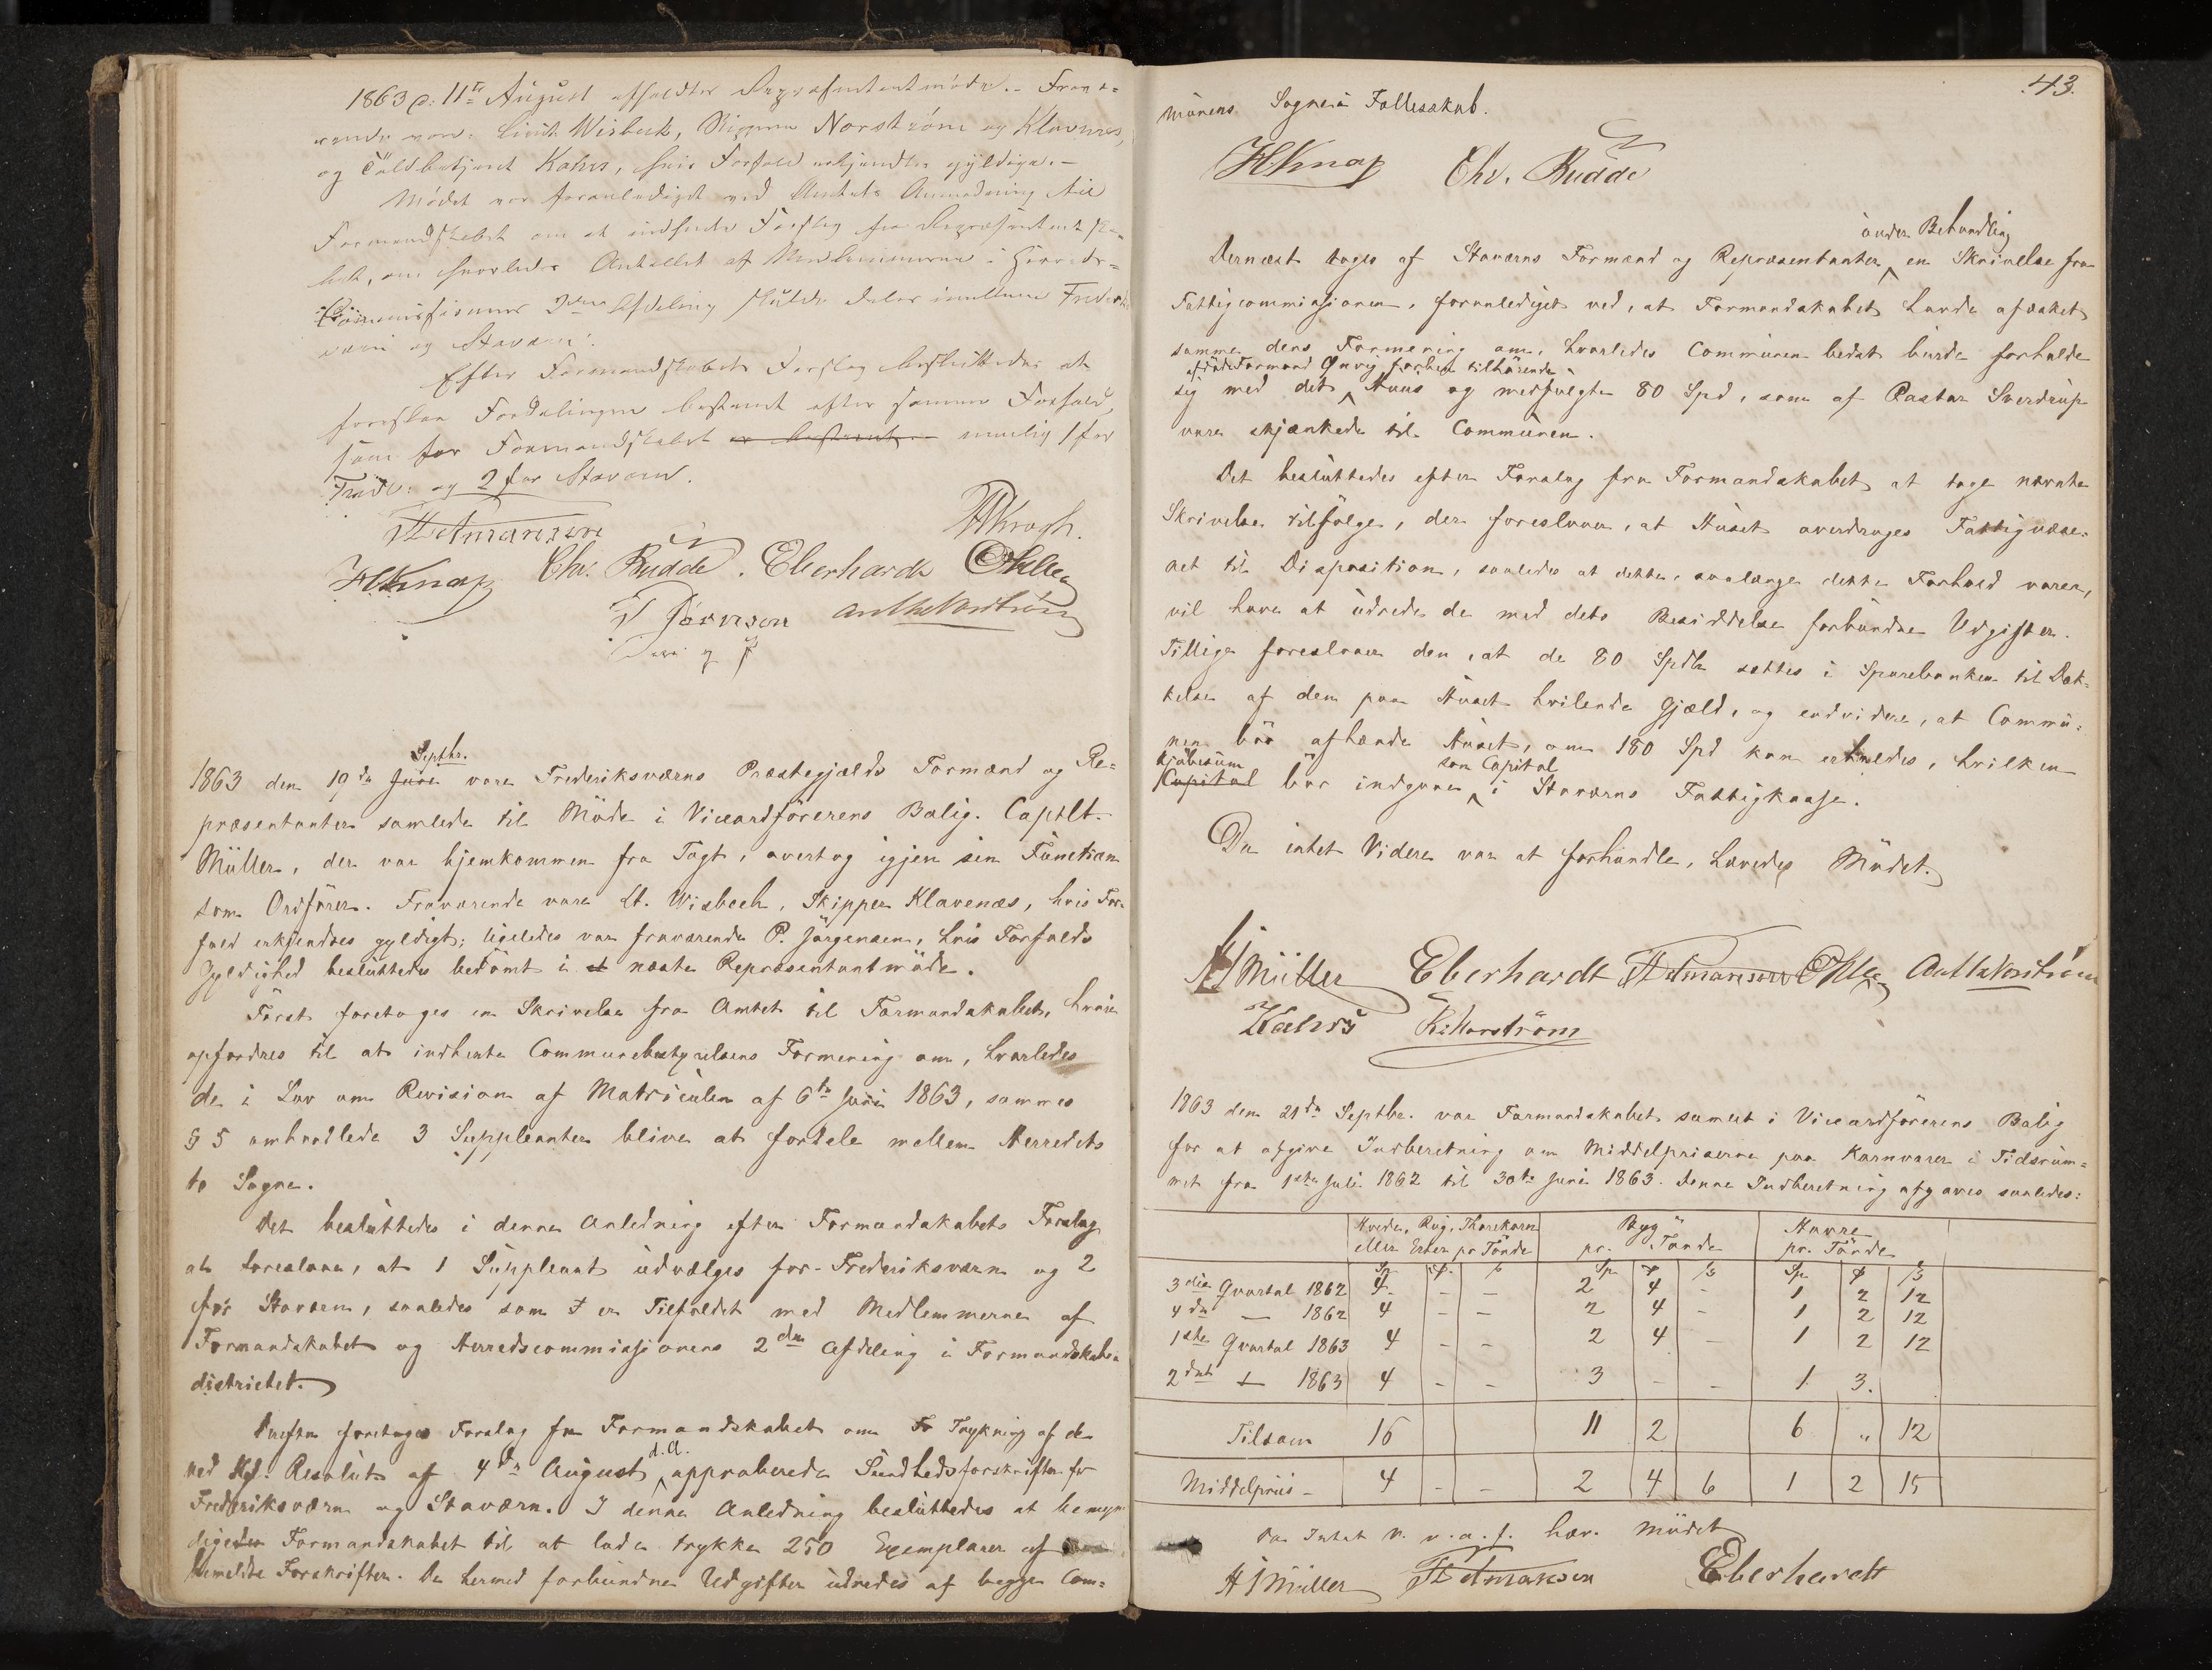 1863 d. 11te August afholdtes Repræsentantmøde. – Fravæ=
rende vare: Lieut. Wisbech, Skipper Norström og Klavenæs,
og Toldbetjent Kahrs, hvis Forfald erkjendtes gyldige. –
Mödet var foranlediget ved Amtets Anmodning til
Formandskabet om at indhente Forslag fra Repræsentantska=
bet, om hvorledes Antallet af Medlemmerne i Herreds=
Commissionens 2den Afdeling skulde deles imellem Frederiks
værn og Staværn.
Efter Formandskabets Forslag besluttedes at
foreslaa Fordelingen bestemt efter samme Forhold,
som for Formandskabet er bestemt nemlig 1 for
Fredv: og 2 for Staværn.
HKrogh.
HKnap Chr. Budde. Eberhardt
1863 den 19de Juni Septbr. vare Frederiksværns Præstegjælds Formænd og Re=
præsentanter samlede til Möde i Viceordförerens Bolig. Captlt.
Müller, der var hjemkommen fra Togt, overtog igjen sin Function
som Ordförer. Fraværende vare Lt. Wisbech, Skipper Klavenæs, hvis For=
fald erkjendtes gyldigt; ligeledes var fraværende P. Jörgensen, hvis Forfalds
Gyldighed besluttedes bedömt i et næste Repræsentantmöde.
Först foretoges en Skrivelse fra Amtet til Formandskabet, hvori
opfordres til at indhente Communebestyrelsens Formening om, hvorledes
de i Lov om Revision af Matriculen af 6te Juni 1863, sammes
§ 5 omhandlede 3 Suppleanter bliver at fordele mellem Herredets
to Sogne.
Det besluttedes i denne Anledning efter Formandskabets Forslag
at foreslaae, at 1 Suppleant udvælges for Frederiksværn og 2
for Staværn, saaledes som er Tilfældet med Medlemmerne af
Formandskabet og Herredscommissionens 2den Afdeling i Formandskabs
districtet.
Derefter foretoges Forslag fra Formandskabet om Trykning af de
ved Kgl. Resolut. af 4de August d.A. approberede Sundhedsforskrifter for
Frederiksværn og Staværn. I denne Anledning besluttedes at bemyn
digede Formandskabet til at lade trykke 250 Exemplarer af
bemeldte Forskrifter. De hermed forbundne Udgifter udredes af begge Com=
43.
munens Sogne i Fællesskab.
HKnap Chr. Budde
Dernæst toges af Staværns Formænd og Repræsentanter under Behandling en Skrivelse fra
Fattigcommissionen, foranlediget ved, at Formandskabet havde afæsket
samme dens Formening om, hvorledes Communen bedst burde forholde
sig med det afdöde Formand Qvig forhen tilhörende Huus og medfulgte 80 Spd, som af Pastor Sverdrup
vare skjænkede til Communen.
Det besluttedes efter Forslag fra Formandskabet at tage nævnte
Skrivelse tilfölge, der foreslaaer, at Huset overdrages Fattigvæse=
net til Disposition, saaledes at dette, saalænge dette Forhold varer,
vil have at udrede de med dets Besiddelse forbundne Udgifter.
Tillige foreslaaer den, at de 80 Spdlr sættes i Sparebanken til Dæk=
kelse af den paa Huset hvilende Gjæld, og endvidere, at Commu=
nen bör afhænde Huset, om 180 Spd kan erholdes, hvilken
Capital Kjöbesum bör indgaae som Capital i Staværns Fattigkasse.
Da intet Videre var at forhandle, hævedes Mödet.
HJMüller Eberhardt
Kahrs K. Norström
1863 den 21de Septbr. var Formandskabet samlet i Viceordförerens Bolig
for at afgive Indberetning om Middelpriserne paa Kornvarer i Tidsrum=
met fra 1ste Juli 1862 til 30te Juni 1863. Denne Indberetning afgaves saaledes:
Hvede, Rug, Thorekorn eller Erter pr Tönde | Byg pr. Tönde | Havre pr. Tönde
Sp | ß | Sp | ß | Sp | ß
3die Qvartal 1862 4 - - 2 4 - 1 2 12
4de — 1862 4 - - 2 4 - 1 2 12
1ste Qvartal 1863 4 - - 2 4 - 1 2 12
2det — 1863 4 - - 3 - - 1 3.
Tilsam 16 11 2 6 „ 12
Middelpriis – 4 - - 2 4 6 1 2 15
Da Intet V. v. a. f. hæv. Mödet
HJMüller Eberhardt